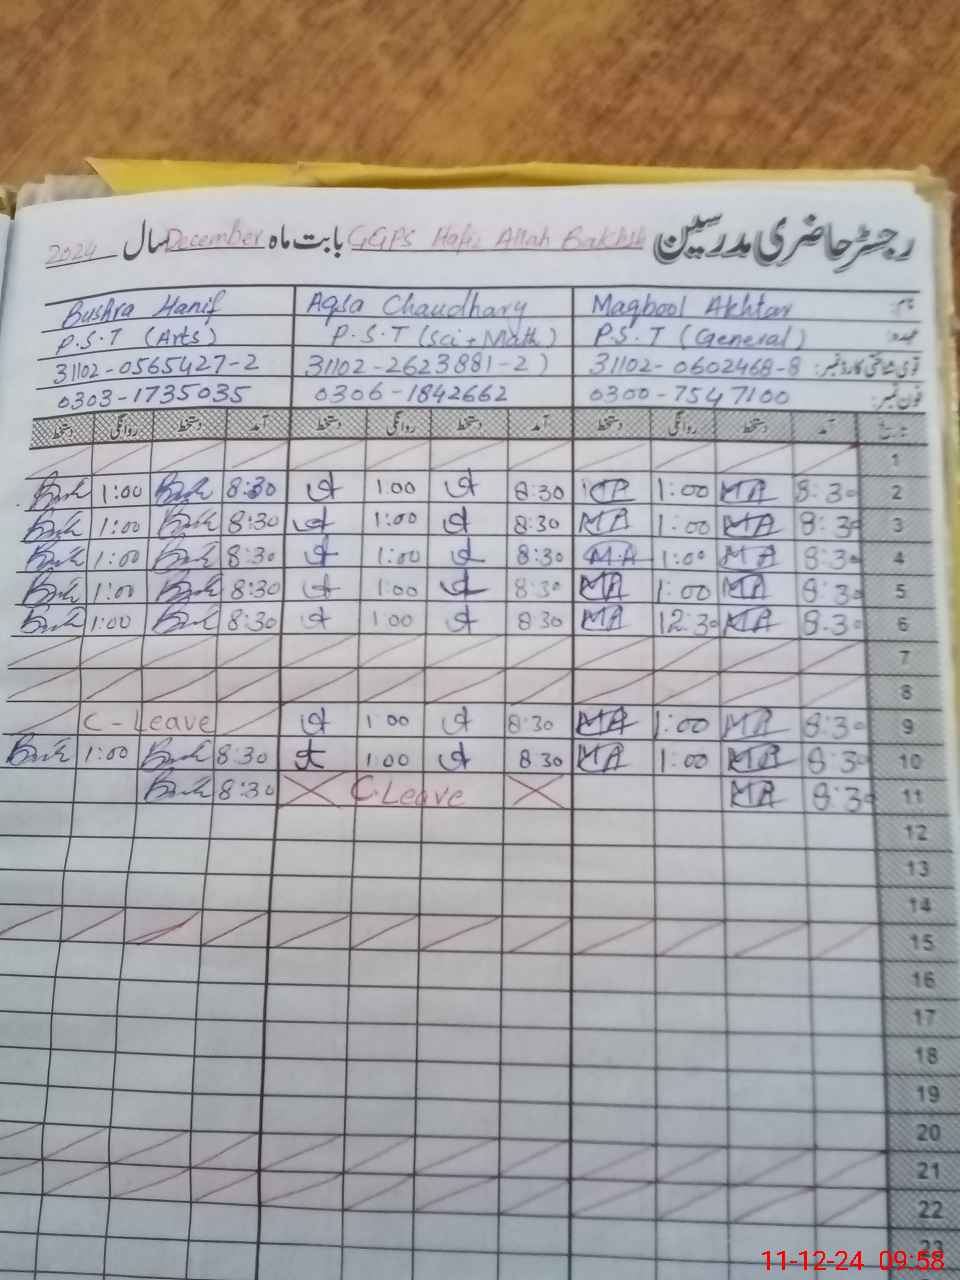 رجسٹر حاضری مدرسین GGPS Hafiz Allah Bakhsh بابت ماہ December سال 2024
نام: Maqbool Akhtar Aqsa Chaudhary Bushra Hanif
عہدہ: P.S.T (General) P.S.T (Sci + Math) P.S.T (Arts)
قومی شناختی کارڈ نمبر: 31102-0602468-8 31102-2623881-2 31102-0565427-2
فون نمبر: 0300-7547100 0306-1842662 0303-1735035
تاریخ آمد دستخط روانگی دستخط آمد دستخط روانگی دستخط آمد دستخط روانگی دستخط
1
2 8:30 MA 1:00 8:30 1:00 8:30 1:00
3 8:30 MA 1:00 MA 8:30 1:00 8:30 1:00
4 8:30 MA 1:00 MA 8:30 1:00 8:30 1:00
5 8:30 MA 1:00 MA 8:30 1:00 8:30 1:00
6 8:30 MA 12:30 MA 8:30 1:00 8:30 1:00
7
8
9 8:30 MA 1:00 MA 8:30 1:00 C - Leave
10 8:30 MA 1:00 MA 8:30 1:00 8:30 1:00
11 8:30 MA C.Leave 8:30
12
13
14
15
16
17
18
19
20
21
22
23
11-12-24 09:58